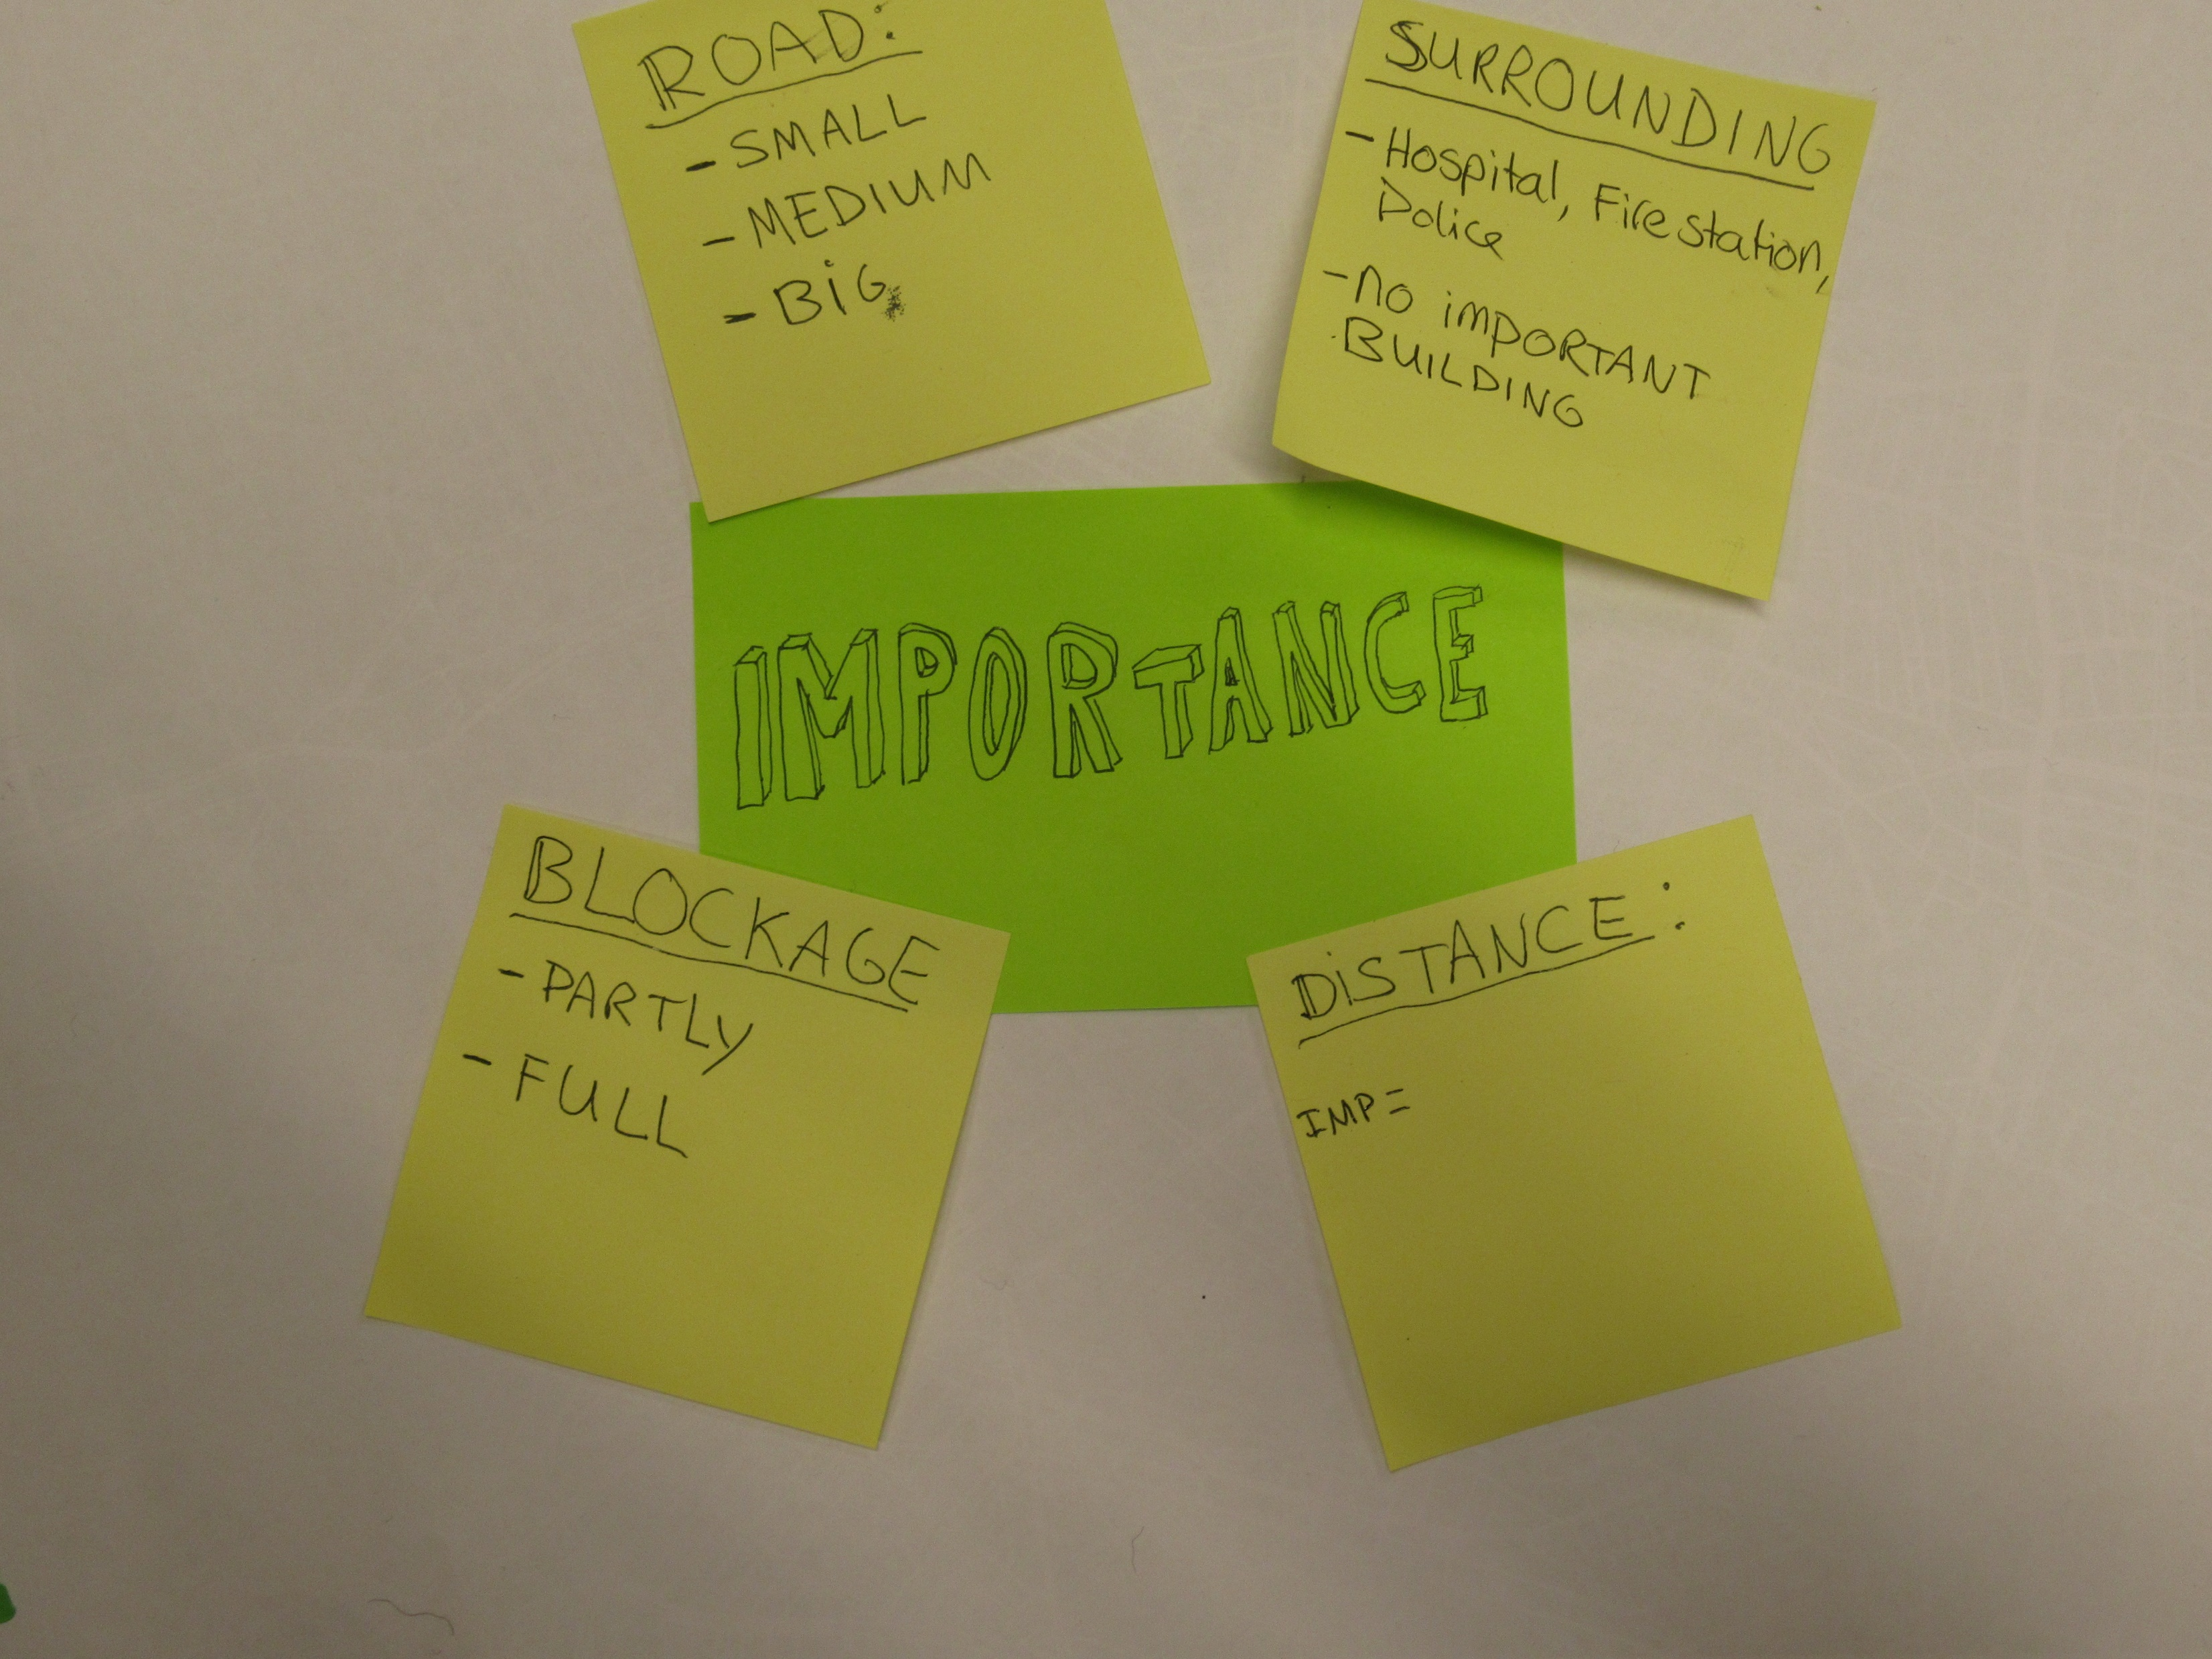 ROAD:
- SMALL
- MEDIUM
- BiG
SURROUNDING
- Hospital, Fire station,
Police
- no imPORTANT
BUILDING
IMPORTANCE
BLOCKAGE
- PARTLY
- FULL
DiSTANCE:
IMP =